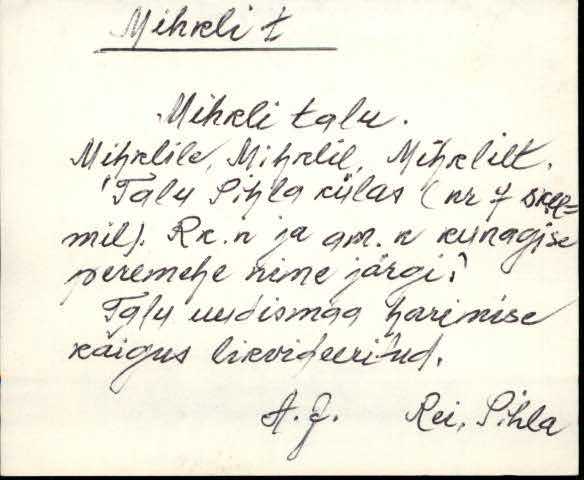 Mihkli t
Mihkli talu.
Mihklile, Mihklil, Mihklilt.
'Talu Pihla külas (nr 7 skee-
mil). Rk. n ja am. n kunagise
peremehe nime järgi.'
Talu uudismaa harimise
käigus likvideeritud.
A. J. Rei, Pihla